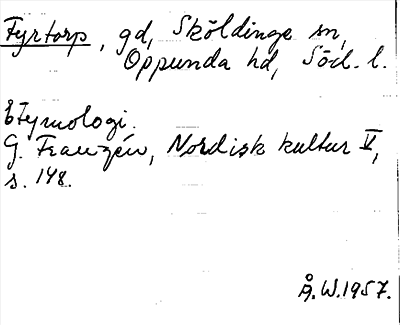 Fyrtorp, gd, Sköldinge sn,
Oppunda hd, Söd. l.
Etymologi.
G. Franzén, Nordisk kultur V,
s. 148.
Å.W.1957.